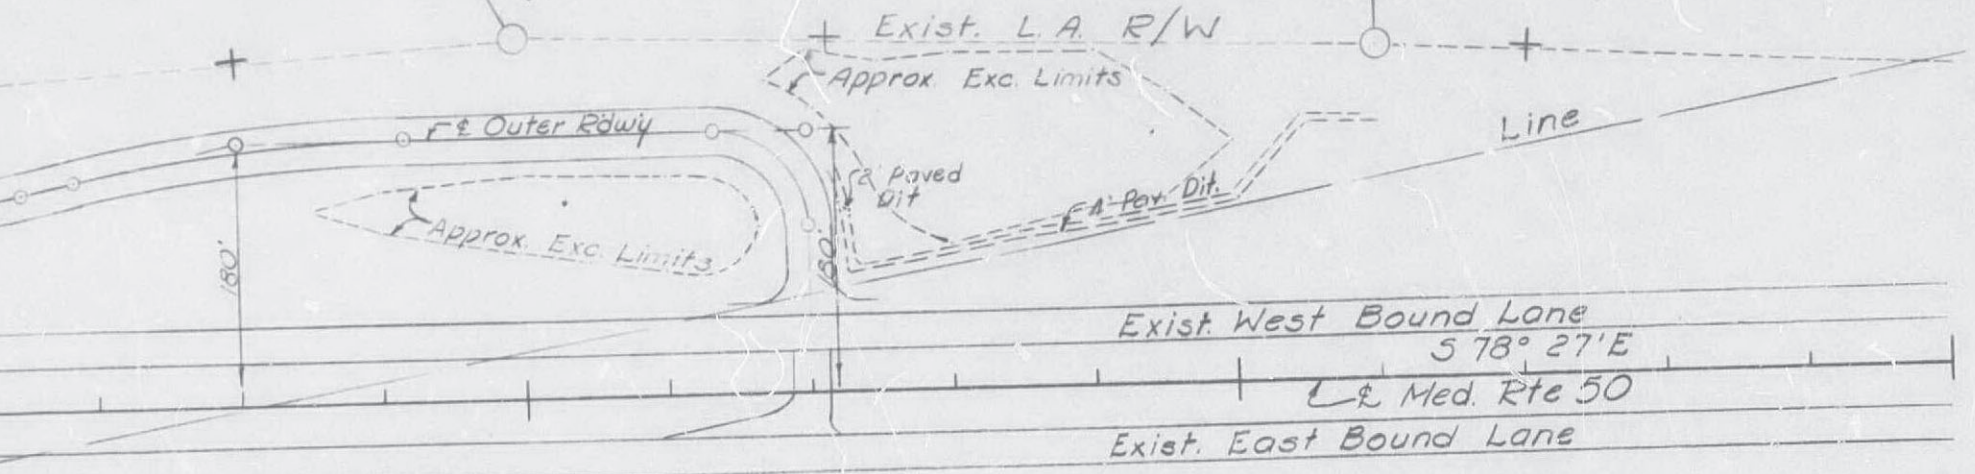 Exist. L. A. R/W
Approx. Exc. Limits
℄ Outer Rdwy
Line
2' Paved
Dit
4' Pav. Dit.
Approx. Exc. Limits
180'
180'
Exist. West Bound Lane
S 78° 27' E
℄ Med. Rte 50
Exist. East Bound Lane